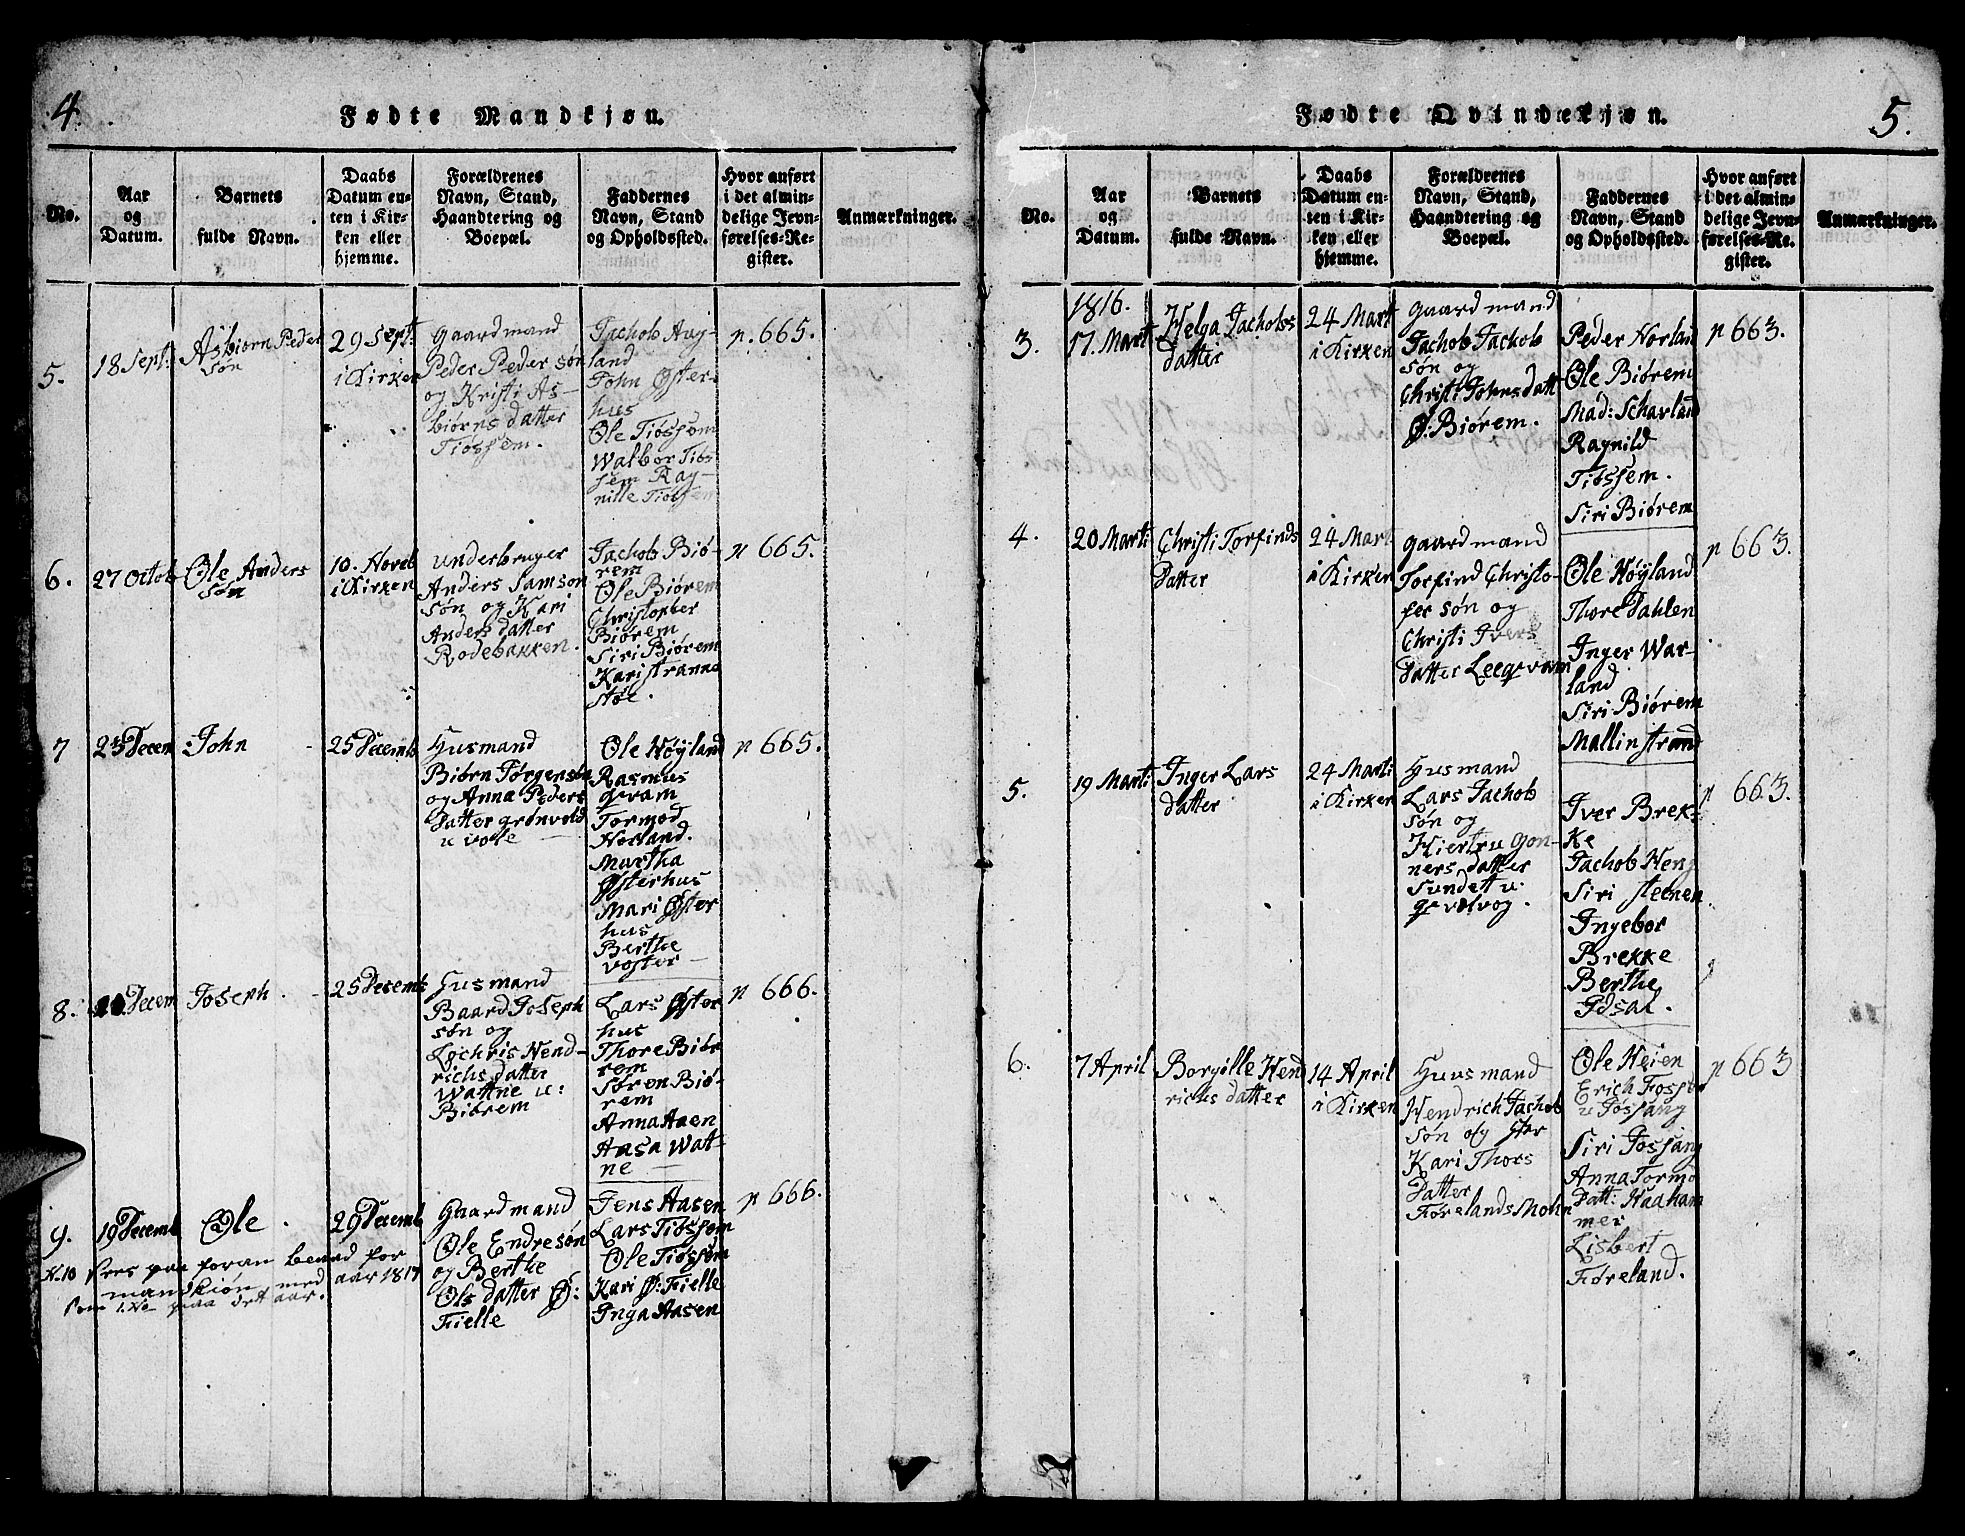 4.
Fødte Mandkjøn.
No.
Aar
og
Datum.
Barnets
fulde Navn.
Daabs
Datum en-
ten i Kir-
ken eller
hjemme.
Forældrenes
Navn, Stand,
Haandtering og
Boepæl.
Faddernes
Navn, Stand
og Opholdssted.
Hvor anført
i det almin-
delige Jevn-
førelses-Re-
gister.
Anmærkninger.
5.
18 Sept:
Asbiørn Peder
søn
29 Sept:
i Kirken
Gaardmand
Peder Peder søn
og Kristi As-
biørns datter
Tiøssem.
Jachob Aug-
land
John Øster-
hus
Ole Tiøssem
Walbor Tiøs
sem Rag-
nille Tiøssem
p. 665.
6.
27 Octob
Ole Anders
søn
10. Noveb
i Kirken
underbruger
Anders Samson
søn og Kari
Anders datter
Rodebakken.
Jachob Biø-
rem
Ole Biørem
Christopher
Biørem
Siri Biørem
Kari stranne
støe.
p 665.
7
23 Decem
John
25 Decemb
Husmand
Biørn Jørgensøn
og Anna Peders
Datter grønvold
u
Ole Høyland
Rasmus
qvam
Tormod
Norland.
Martha
Østerhus
Mari Øster
hus
Berthe
voster
p 665.
8.
Decem
Joseph
25 Decemb
Husmand
Baard Joseph
søn og
Lochris Hend-
richs datter
Wattne u:
Biørem
Lars Øster
hus
Thore Biør
rem
Søren Biø-
rem
Anna Aaen
Aasa Wat-
ne
p 666.
9.
19 Decemb
Ole
29 Decemb
Gaardmand
Ole Endresøn
og Berthe
Ols datter Ø:
Fielle
Jens Aasen
Lars Tiøssem
Ole Tiøssem
Kari Ø: Fielle
Inga Aasen
p 666.
N.10 sees paa foran benævnd for
aar 1817
mandkiøn med
som 1. No paa det aar.
5.
Fødte Qvindekjøn.
No.
Aar
og
Datum.
Barnets
fulde Navn.
Daabs
Datum en-
ten i Kir-
ken eller
hjemme.
Forældrenes
Navn, Stand,
Haandtering og
Boepæl.
Faddernes
Navn, Stand
og Opholdssted.
Hvor anført
i det almin-
delige Jevn-
førelses-Re-
gister.
Anmærkninger.
1816.
3.
17. Mart
Helga Jachobs
datter
24 Mart
i Kirken
gaardmand
Jachob Jachob
søn og
Christi Johns datt
Ø: Biørem.
Peder Norland
Ole Biørem
Mad: Scharland
Ragnild
Tiøssem.
Siri Biørem
p 663.
4.
20 Marti
Christi Torfinds
Datter
24 Mart
i Kirken
gaardmand
Torfind Christo-
fer søn og
Christi Ivers
datter Leeqvam
Ole Høyland
Thore Dahlen
Inger War-
land
Siri Biørem
Mallin strand
p 663.
5.
19 Marti
Inger Lars
datter
24 Marti
i Kirken
Husmand
Lars Jachob
søn og
Kiertru Gon-
ners datter
Sundet u:
qvalvog.
Iver Brek-
ke
Jachob Heng
Siri steenen
Ingebor
Brekke
Berthe
Idsal.
p 663.
6.
7 April
Borgille Hend
richs datter
14 April
i Kirken
Huusmand
Hendrich Jachob
søn og
Kari Thors
Datter
Førelands Mohn
Ole Heien
Erich Fossan
u Fossang
Siri Fossang
Anna Tormo
Datt: Haaham
mer
Lisbert
Føreland.
p 663